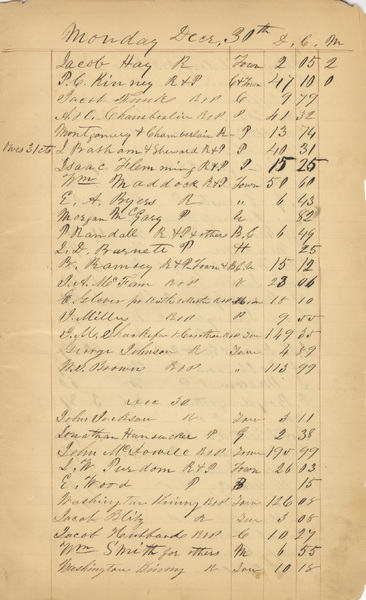 Monday Decr, 30th D. C. M
Jacob Hay R Town 2 05 2
P. C. Kinney R & P C & Town 47 10 0
Jacob Funk R & P C 9 79
A & C. Chamberlin R & P P 41 32
Montgomery & Chamberlain R P 13 74
Tues 31st J. Basham & R & P P 40 31
Isaac Flemming R & P P 15 25
Wm Maddock R & P Town 50 60
E. A. Byers R " 6 43
Morgan McGary P 82
P Randall R & P & others B. C 6 49
J. D. Burnett P H 25
B. Ramsey R & P Town & B. C. 15 12
J. A. McFain R & P 23 06
E Glover for 18 10
J. Miller R & P P 9 55
J. M. for R & P Town 149 35
George Johnson R Town 4 89
M. D Brown R & P " 113 99
Dec 30
John Jackson R Town 3 11
Jonathan Hunsucker P G 2 38
John McDowell R & P Town 195 99
J. W. Purdom R & P Town 26 03
E. Wood P B 15
Washington Dinny R & P Town 126 08
Jacob Blitz R Town 3 08
Jacob Hubbard R & P C 10 27
Wm Smith for others M 6 55
Washington Dinny R Town 10 18